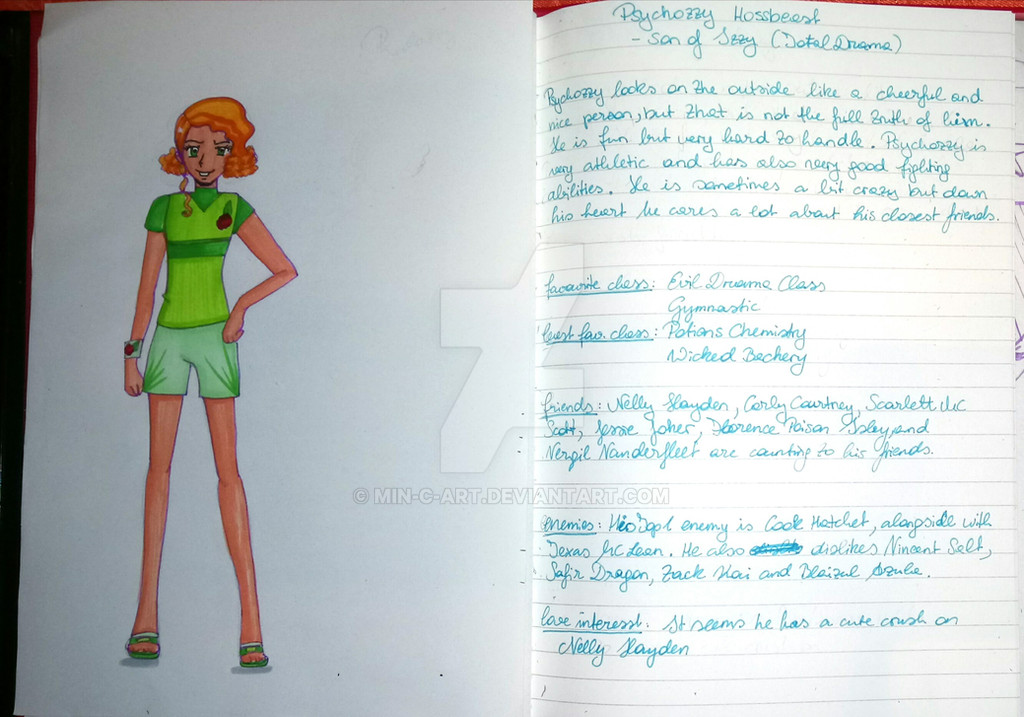 Psychozzy Hossbeast
- son of Izzy (Total Drama)
Psychozzy looks on the outside like a cheerful and
nice person, but that is not the full truth of him.
He is fun but very hard to handle. Psychozzy is
very athletic and has also very good fighting
abilities. He is sometimes a bit crazy but down
his heart he cares a lot about his closest friends.
favourite class: Evil Drama Class
Gymnastic
least fav. class: Potions Chemistry
Wicked Bachery
friends: Nelly Hayden, Carly Courtney, Scarlett Mc
Scott, Jessie Joker, Florence Poison and
Vergil Vanderfleet are counting to his friends.
© MIN-C-ART.DEVIANTART.COM
enemies: His Top 1 enemy is Cook Hatchet, alongside with
Texas McLean. He also dislikes Vincent Salt,
Safir Dragon, Zack Kai and Blaizul Azula.
love interest: It seems he has a cute crush on
Nelly Hayden